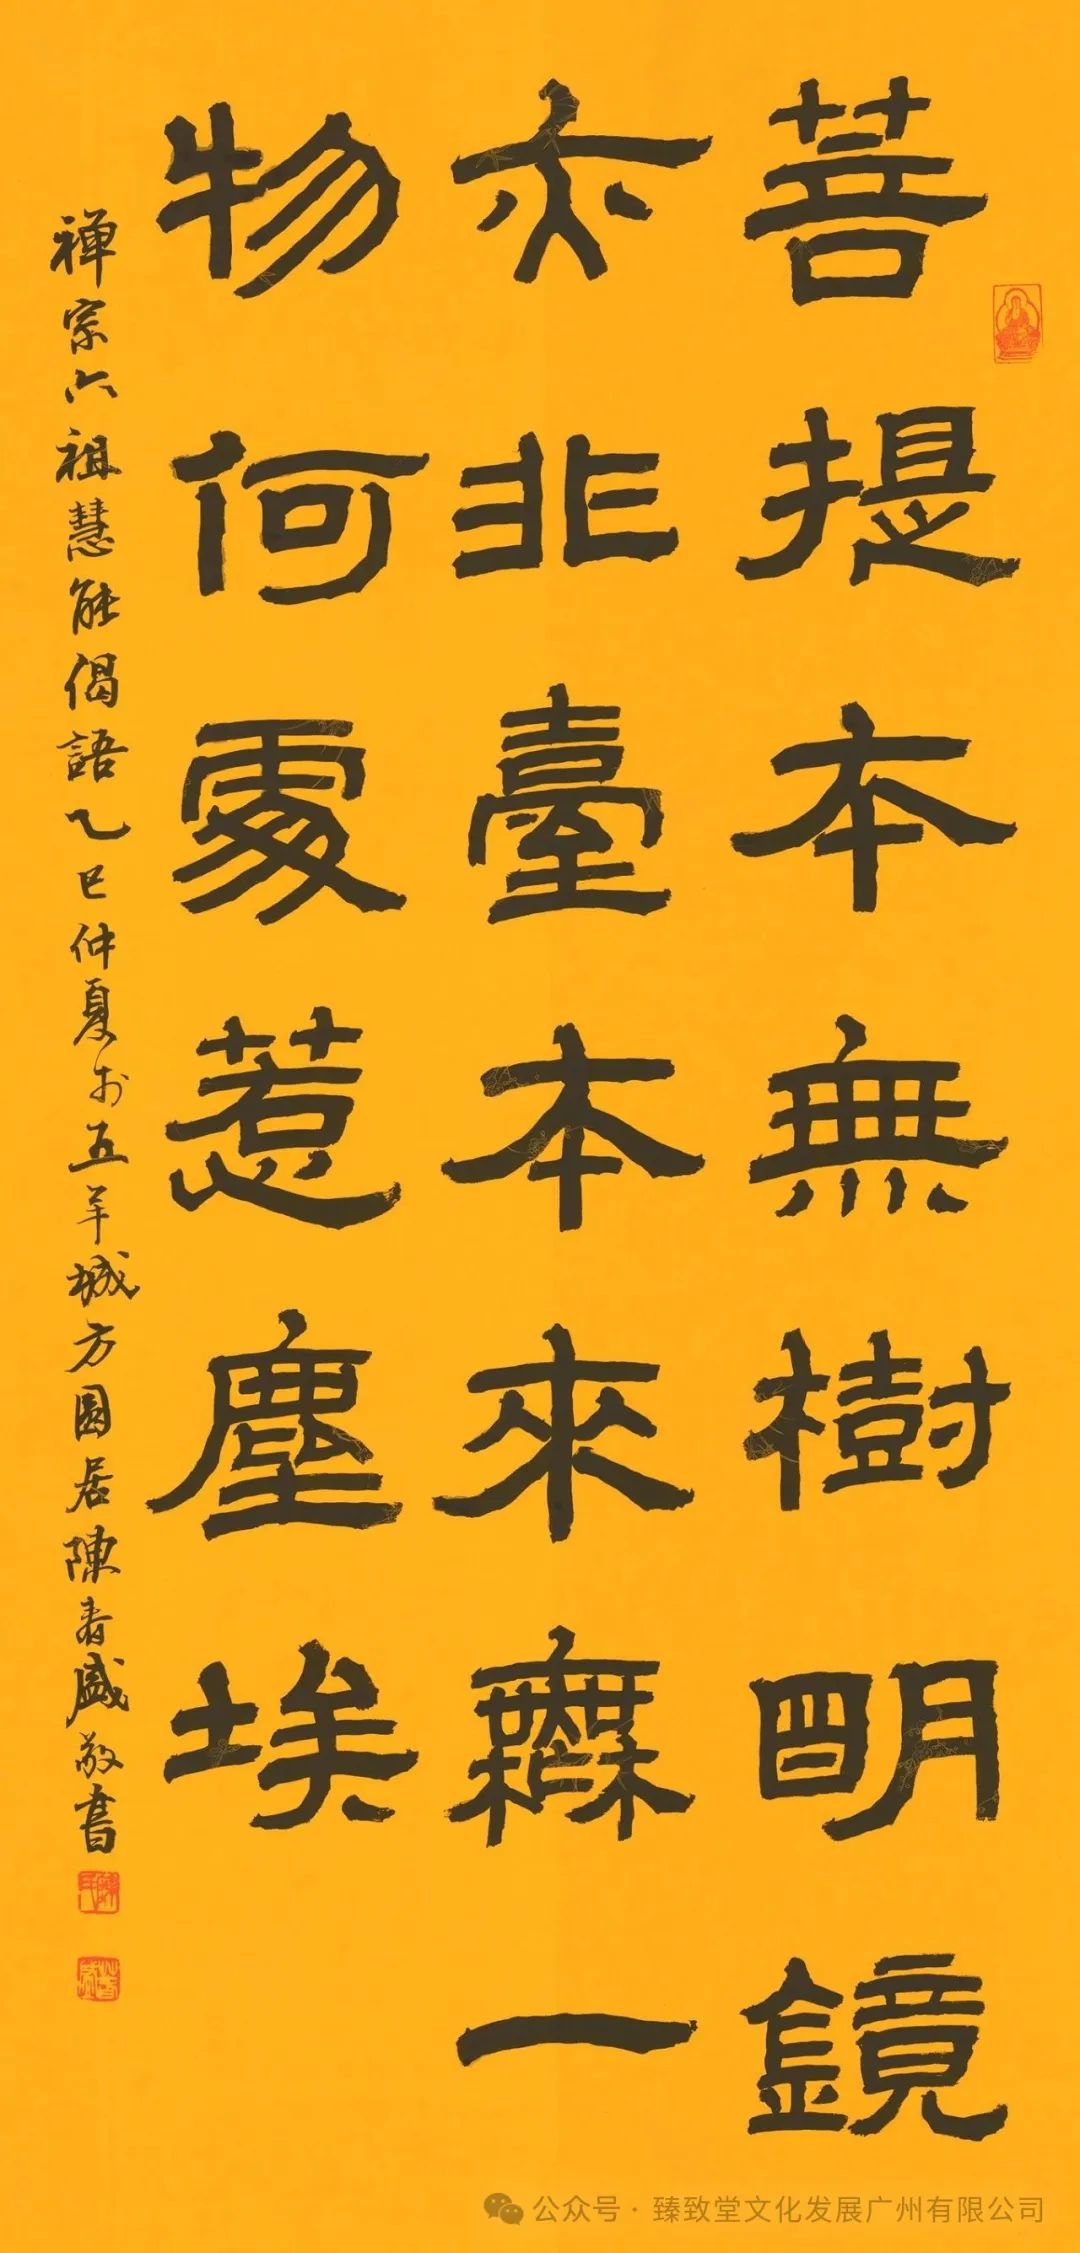 菩提本無樹明鏡
亦非臺本來無一
物何處惹塵埃
禪宗六祖慧能偈語乙巳仲夏於五羊城方圓居陳春盛敬書
公众号·臻致堂文化发展广州有限公司